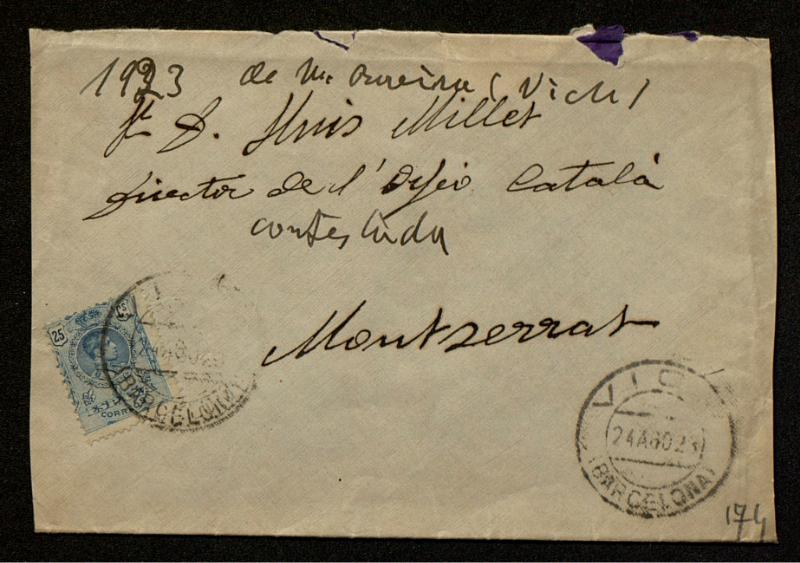 1923 de M. (Vich)
Sr. D. Lluis Millet
Director de l'Orfeó Català
contestada
Montserrat
25
CORREOS
(BARCELONA)
VICH
24AGO23
(BARCELONA)
174